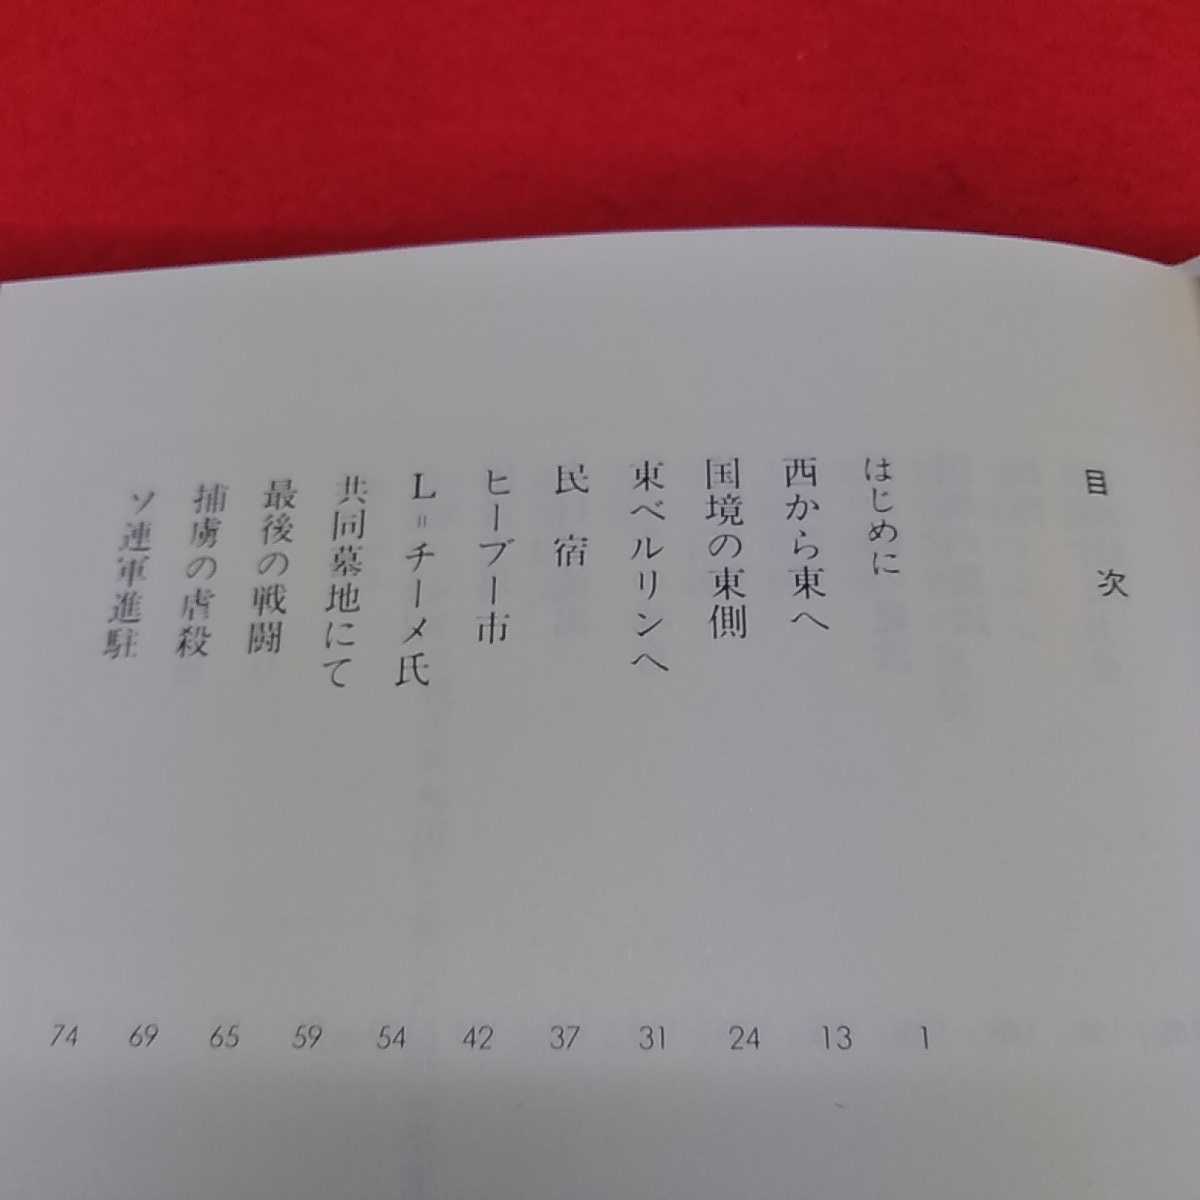 目次
はじめに
西から東へ
国境の東側
東ベルリンへ
民宿
ヒーブー市
L=チーメ氏
共同墓地にて
最後の戦闘
捕虜の虐殺
ソ連軍進駐
1
13
24
31
37
42
54
59
65
69
74